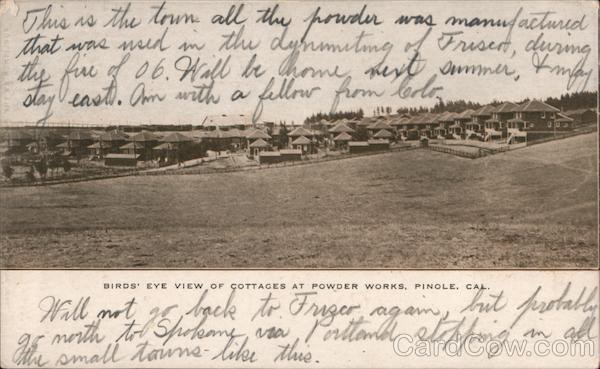 This is the town all the powder was manufactured
that was used in the dynimiting of Frisco, during
the fire of 06. Will be home next summer, & may
stay east. Am with a fellow from Colo.
BIRDS' EYE VIEW OF COTTAGES AT POWDER WORKS, PINOLE, CAL.
Will not go back to Frisco again, but probably
go north to Spokane via Portland stopping in all
the small towns like this.
CardCow.com